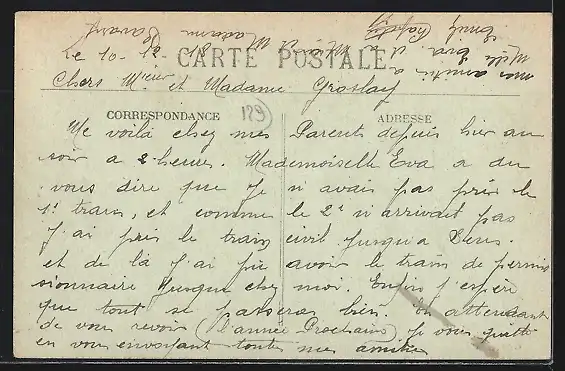 Le 10-12-18
CARTE POSTALE
Chers Mr et Madame Groslay
CORRESPONDANCE
129
ADRESSE
Me voilà chez mes Parents depuis hier au
soir a 2 heures. Mademoiselle Eva a du
vous dire que je n'avais pas pris le
1r train, et comme le 2e n'arrivait pas
j'ai pris le train civil jusqu'a
et de là j'ai pu avoir le train de permis
sionnaire jusque chez moi. Enfin j'espère
que tout se passera bien. En attendant
de vous revoir (l'année Prochaine) je vous quitte
en vous envoyant toutes mes amitiés
mes amitiés a
Mlle Eva et a
Emile
Madame